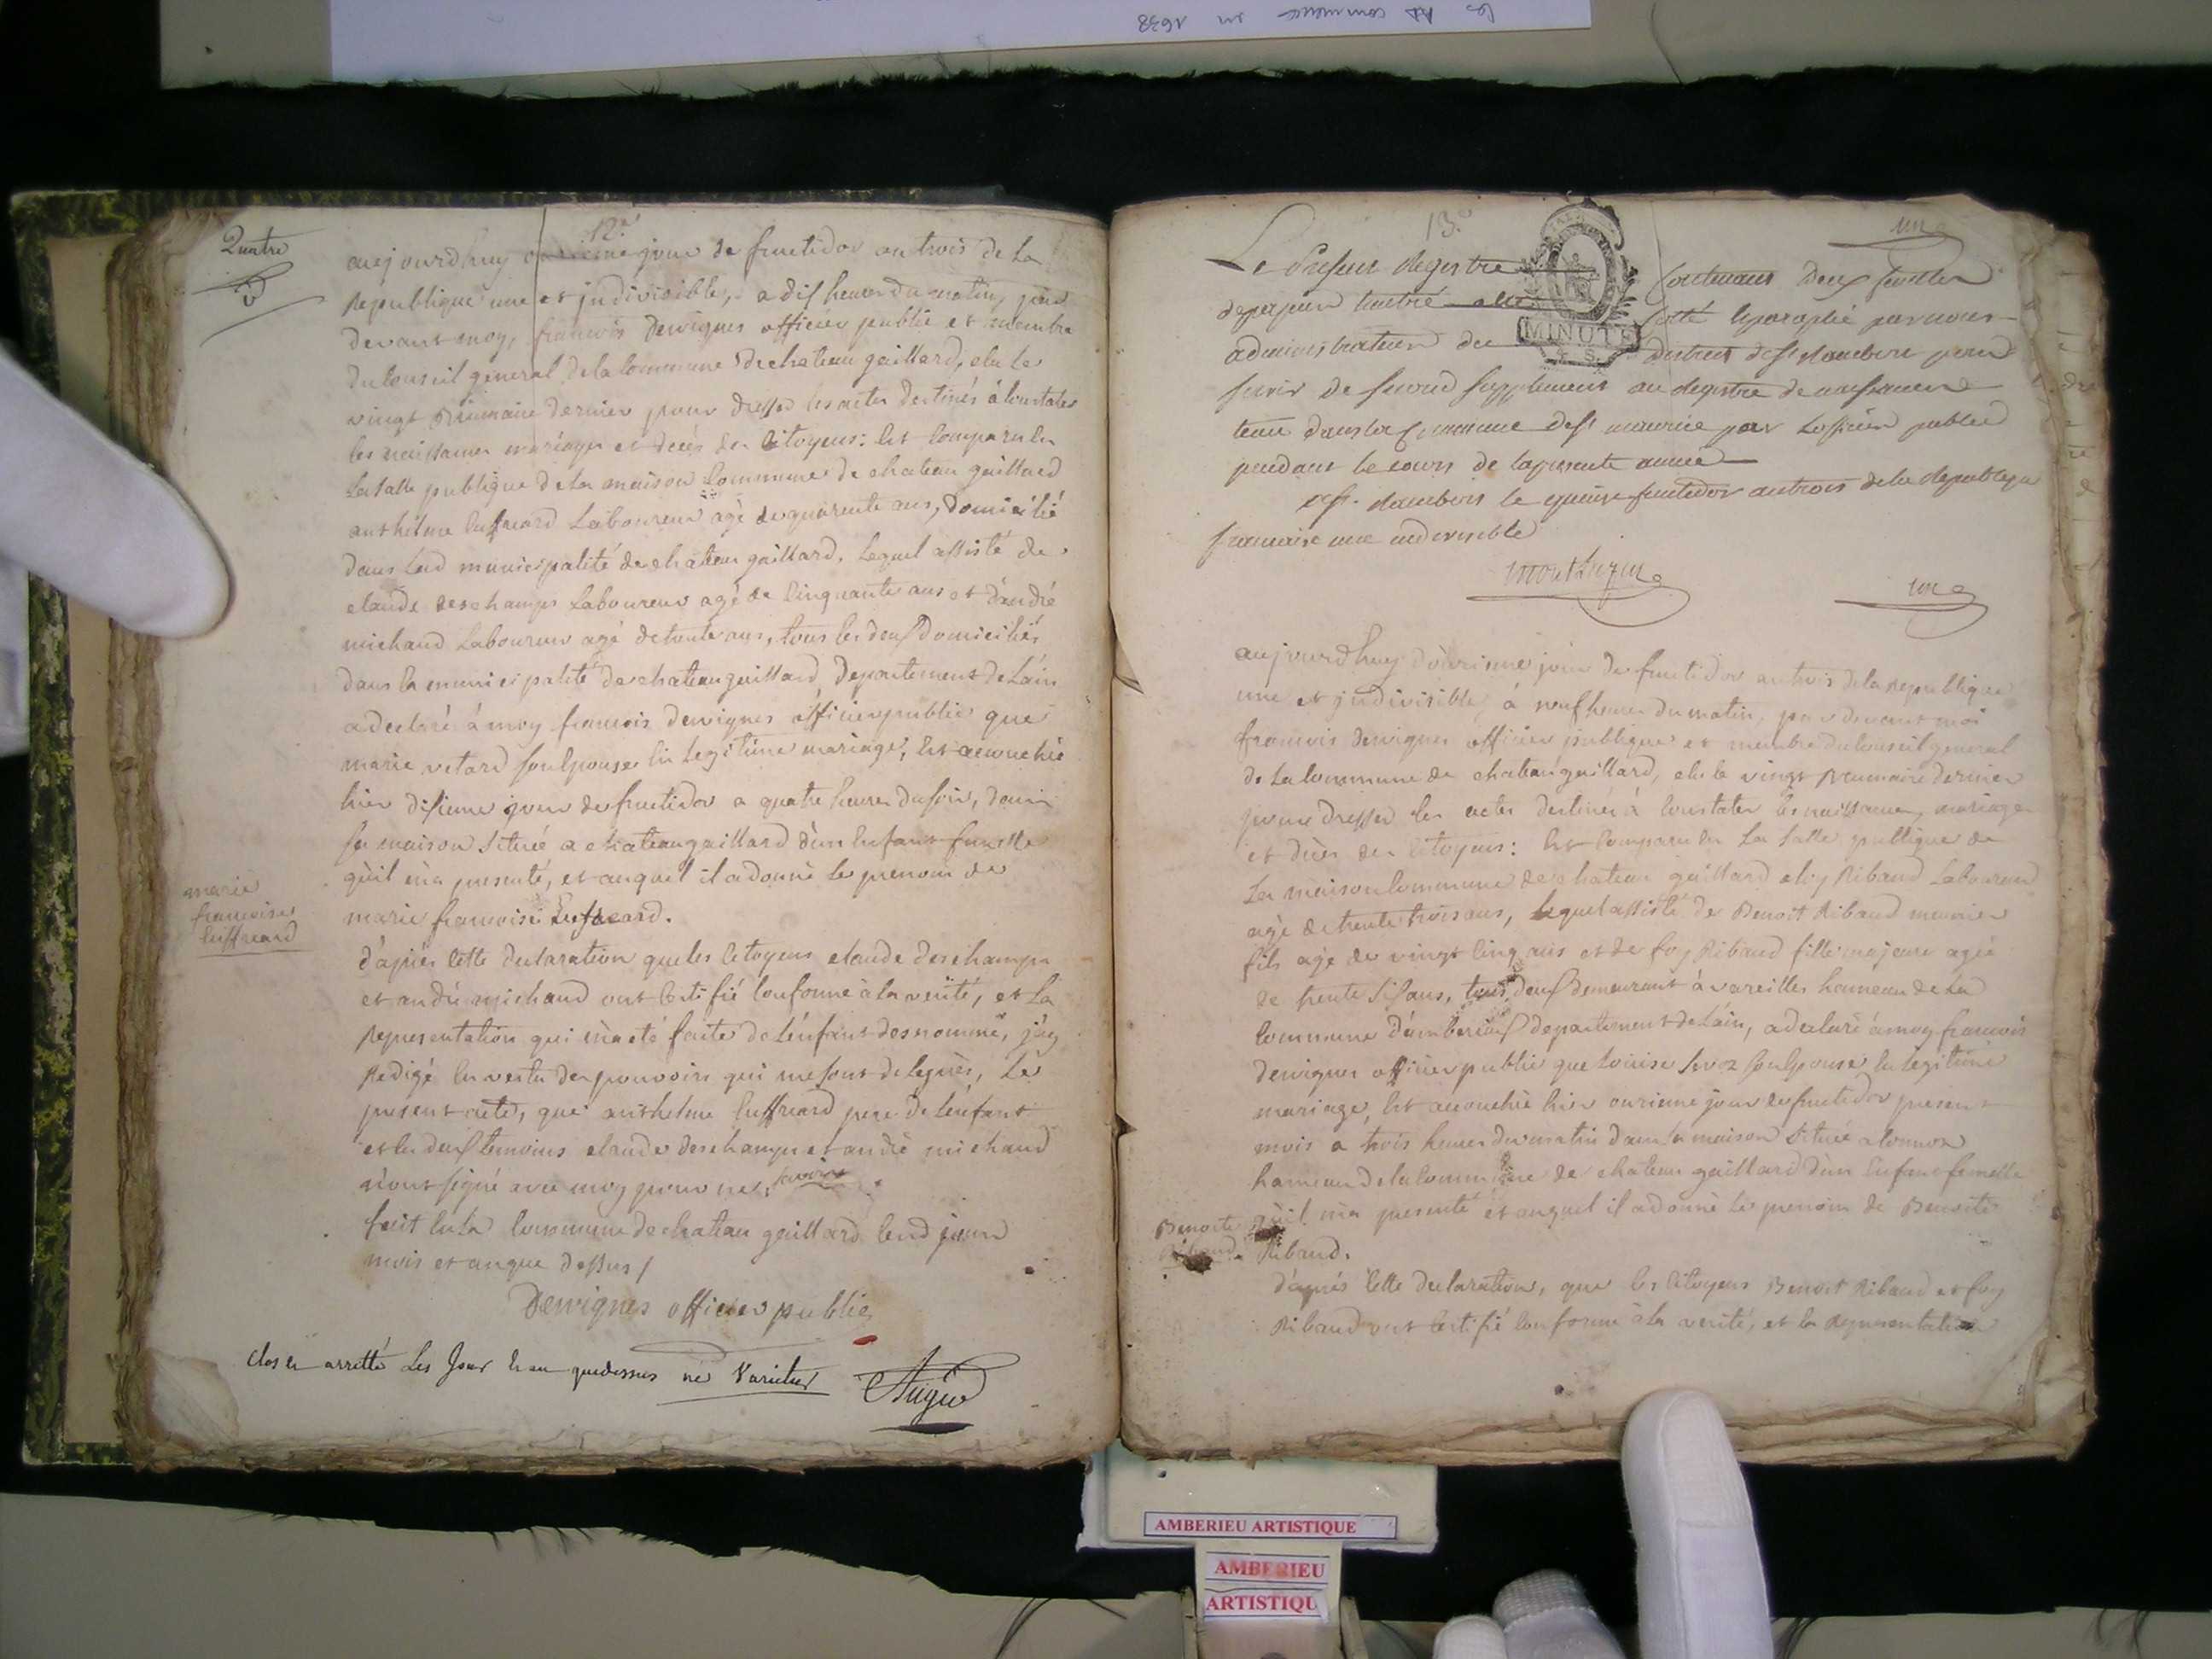 les commence en 1638
Quatre
12.e
aujourdhuy onzieme jour de fructidor an trois de La
Republique une et jndivisible, a dix heures du matin, par
devant moy, francois Dervignes officier public et membre
du Conseil general de la Commune de chateau gaillard, elu le
vingt Brumaire dernier pour dresser les actes destinés à Constater
les naissances mariages et decés des Citoyens: Est Comparu En
La salle publique de la maison Commune de chateau gaillard
anthelme Luffreard Laboureur agé de quarente ans, domicilié
dans Lad municipalité de chateau gaillard, Lequel assisté de
claude deschamps Laboureur agé de Cinquante ans et d'andré
michaud Laboureur agé de trente ans, tous les deux domiciliés
dans la municipalité de chateau gaillard, Departement de Lain
a declaré à moy francois dervignes officier public que
marie vetard son Epouse En Legitime mariage, Est accouchée
hier dixieme jour de fructidor a quatre heures du soir, dans
sa maison Située a chateau gaillard d'un Enfant femelle
qu'il m'a presenté, et auquel il a donné le prenom de
marie francoise Luffreard.
marie
francoise
Luffreard
d'aprés Cette declaration que les Citoyens claude deschamps
et andré michaud ont Certifié Conforme à la verité, et La
Representation qui m'a eté faite de L'enfant desnommé, j'ay
Redigé En vertu des pouvoirs qui me sont delegués, Le
present acte, que anthelme Luffreard pere de L'enfant
et les deux temoins claude deschamps et andré michaud
n'ont signé avec moy pour ne savoir.
fait En La Commune de chateau gaillard Les d jour
mois et an que dessus /
Dervignes officier public
Clos et arretté Les Jour et an que dessus ne Varietur
Augier
13.e
une
Le Present Registre Contenant Deux feuillets
de papier timbré Cotté et paraphé par nous
administrateur du district de St Rambert pour
servir de second supplement au registre de naissances
tenu dans la Commune de St maurice par Lofficier public
pendant le cours de la presente année
a St. Rambert le quinze fructidor an trois de la Republique
francaise une indivisible
MINUTE
4 S.
Montluzin
une
aujourdhuy douzieme jour de fructidor an trois de la Republique
une et jndivisible, à neuf heures du matin, par devant moi
francois dervignes officier publique et membre du Conseil general
de La Commune de chateau gaillard, elu le vingt Brumaire dernier
pour dresser les actes destinés à Constater les naissances, mariages
et décès des Citoyens: Est Comparu En La Salle publique de
La maison Commune de chateau gaillard eloy Ribaud Laboureur
agé de trente trois ans, Lequel assisté de Benoit Ribaud meunier
fils agé de vingt Cinq ans et de foy Ribaud fille majeure agée
de trente Six ans, tous deux demeurant à vareilles hameau de La
Commune d'amberieux departement de Lain, a declaré à moy francois
dervignes officier public que Louise Savoz son Epouse En legitime
mariage, Est accouchée hier onzieme jour de fructidor present
mois a trois heures du matin dans sa maison Située a Cormoz
hameau de la Commune de chateau gaillard d'un Enfant femelle
qu'il m'a presenté et auquel il a donné le prenom de Benoite
Ribaud.
Benoite
Ribaud
d'aprés Cette declaration, que les Citoyens Benoit Ribaud et foy
Ribaud ont Certifié Conforme à la verité, et la Representation
AMBERIEU ARTISTIQUE
AMBERIEU
ARTISTIQU